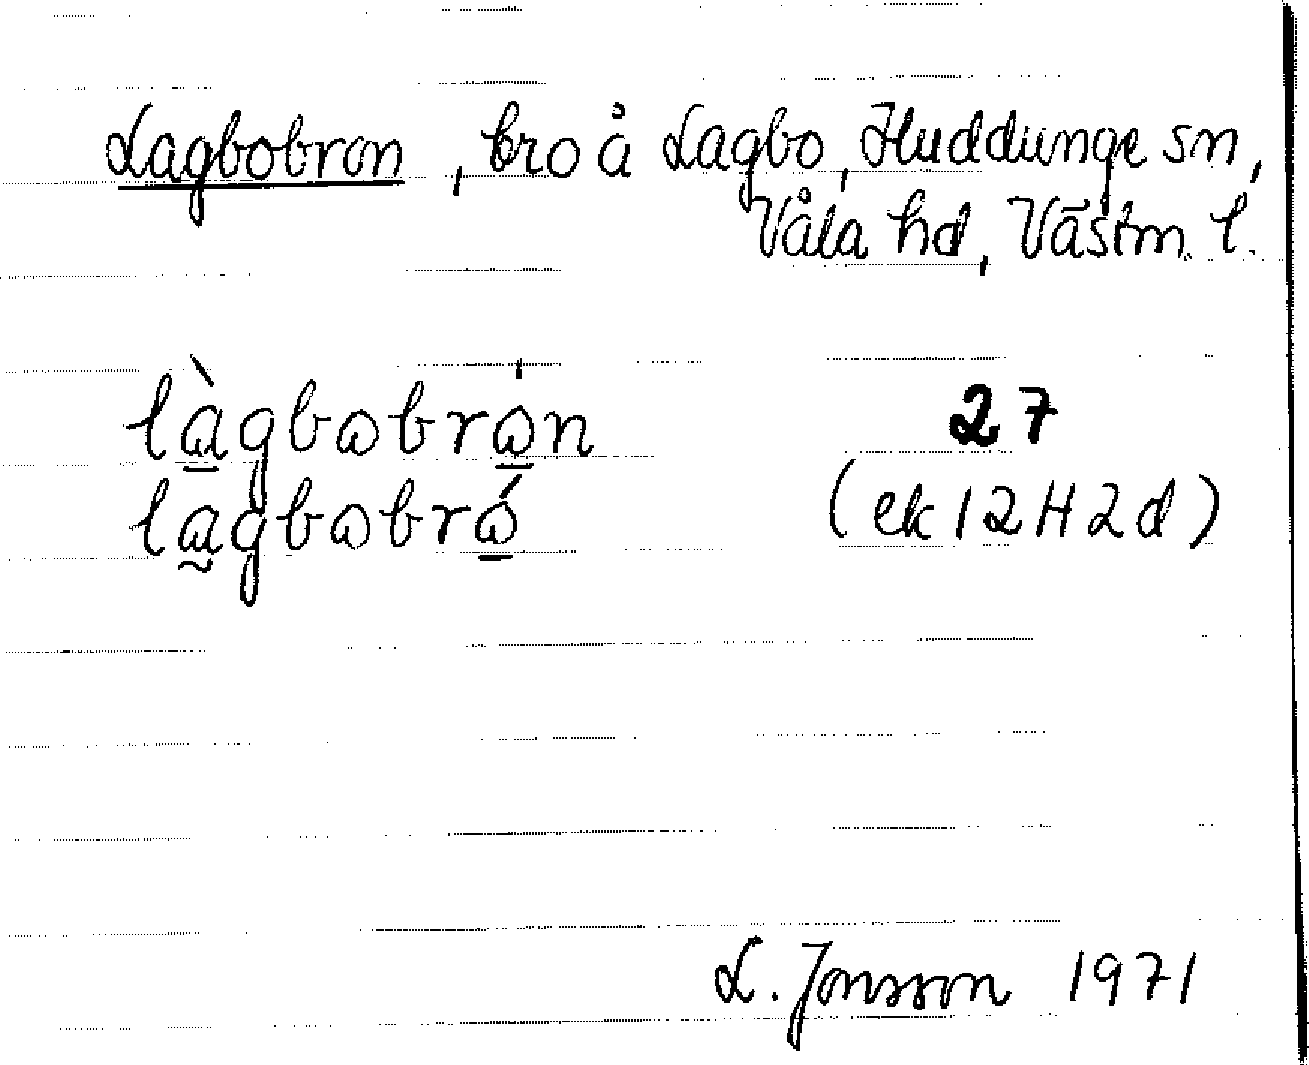 Lagbobron, bro å Lagbo, Huddunge sn,
Våla hd, Västm. l.
làgbωbrω̇n 27
lagbωbrώ (ek 12H2d)
L. Jonsson 1971